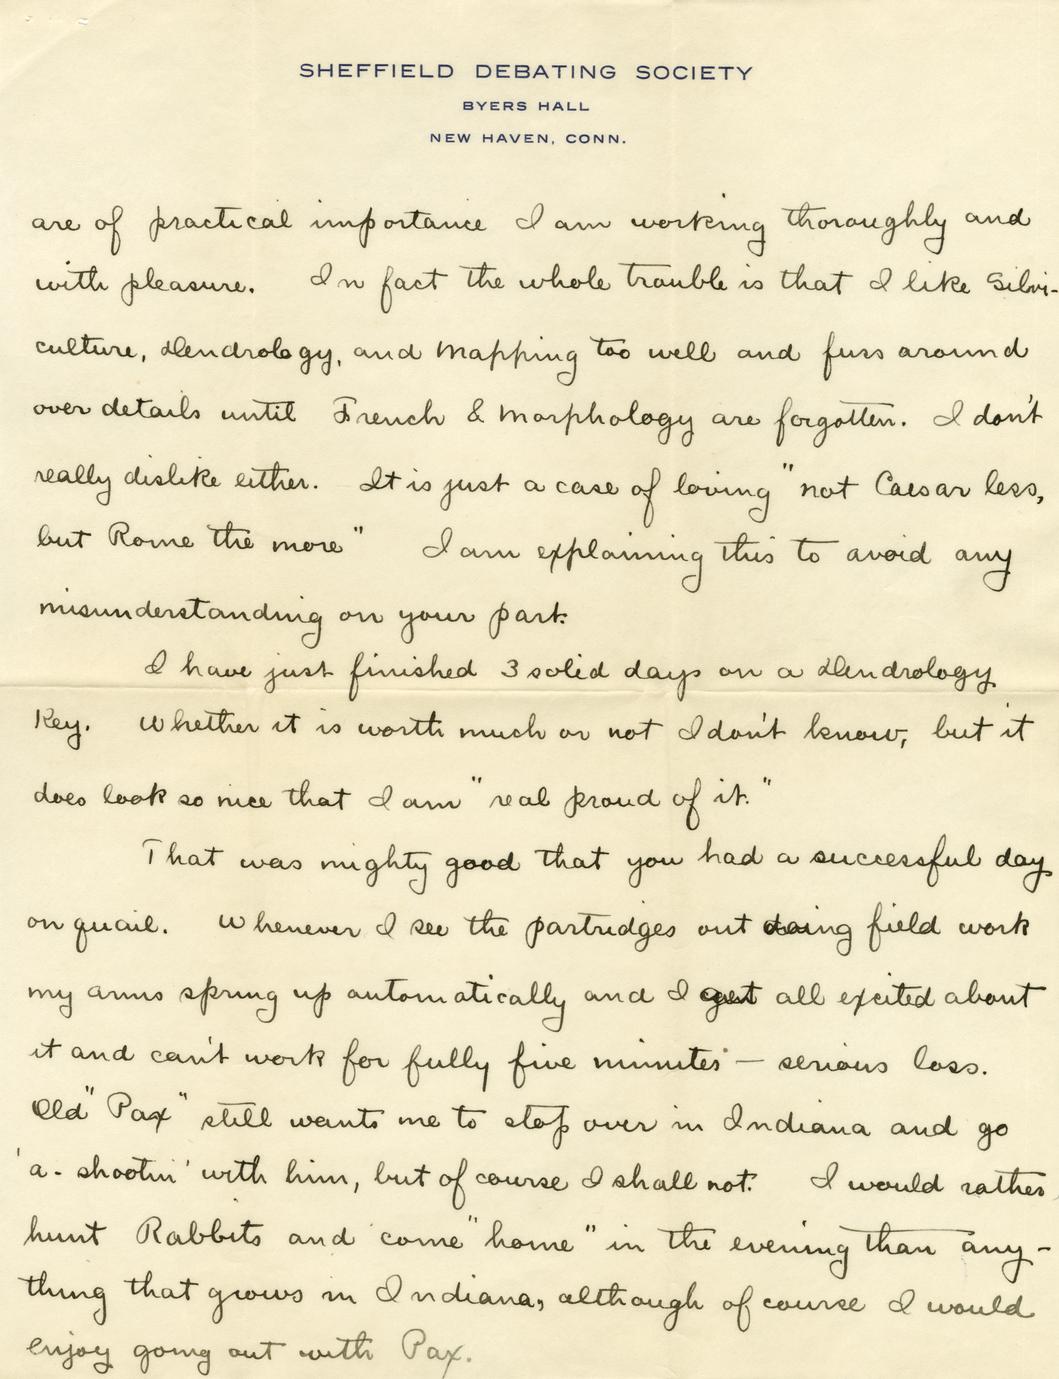 SHEFFIELD DEBATING SOCIETY
BYERS HALL
NEW HAVEN, CONN.
are of practical importance I am working thoroughly and
with pleasure. In fact the whole trouble is that I like Silvi-
culture, Dendrology, and Mapping too well and fuss around
over details until French & Morphology are forgotten. I don't
really dislike either. It is just a case of loving "not Caesar less,
but Rome the more" I am explaining this to avoid any
misunderstanding on your part.
I have just finished 3 solid days on a Dendrology
Key. Whether it is worth much or not I don't know, but it
does look so nice that I am "real proud of it."
That was mighty good that you had a successful day
on quail. Whenever I see the partridges out doing field work
my arms spring up automatically and I get all excited about
it and can't work for fully five minutes — serious loss.
Old "Pax" still wants me to stop over in Indiana and go
'a-shootin' with him, but of course I shall not. I would rather
hunt Rabbits and come "home" in the evening than any-
thing that grows in Indiana, although of course I would
enjoy going out with Pax.